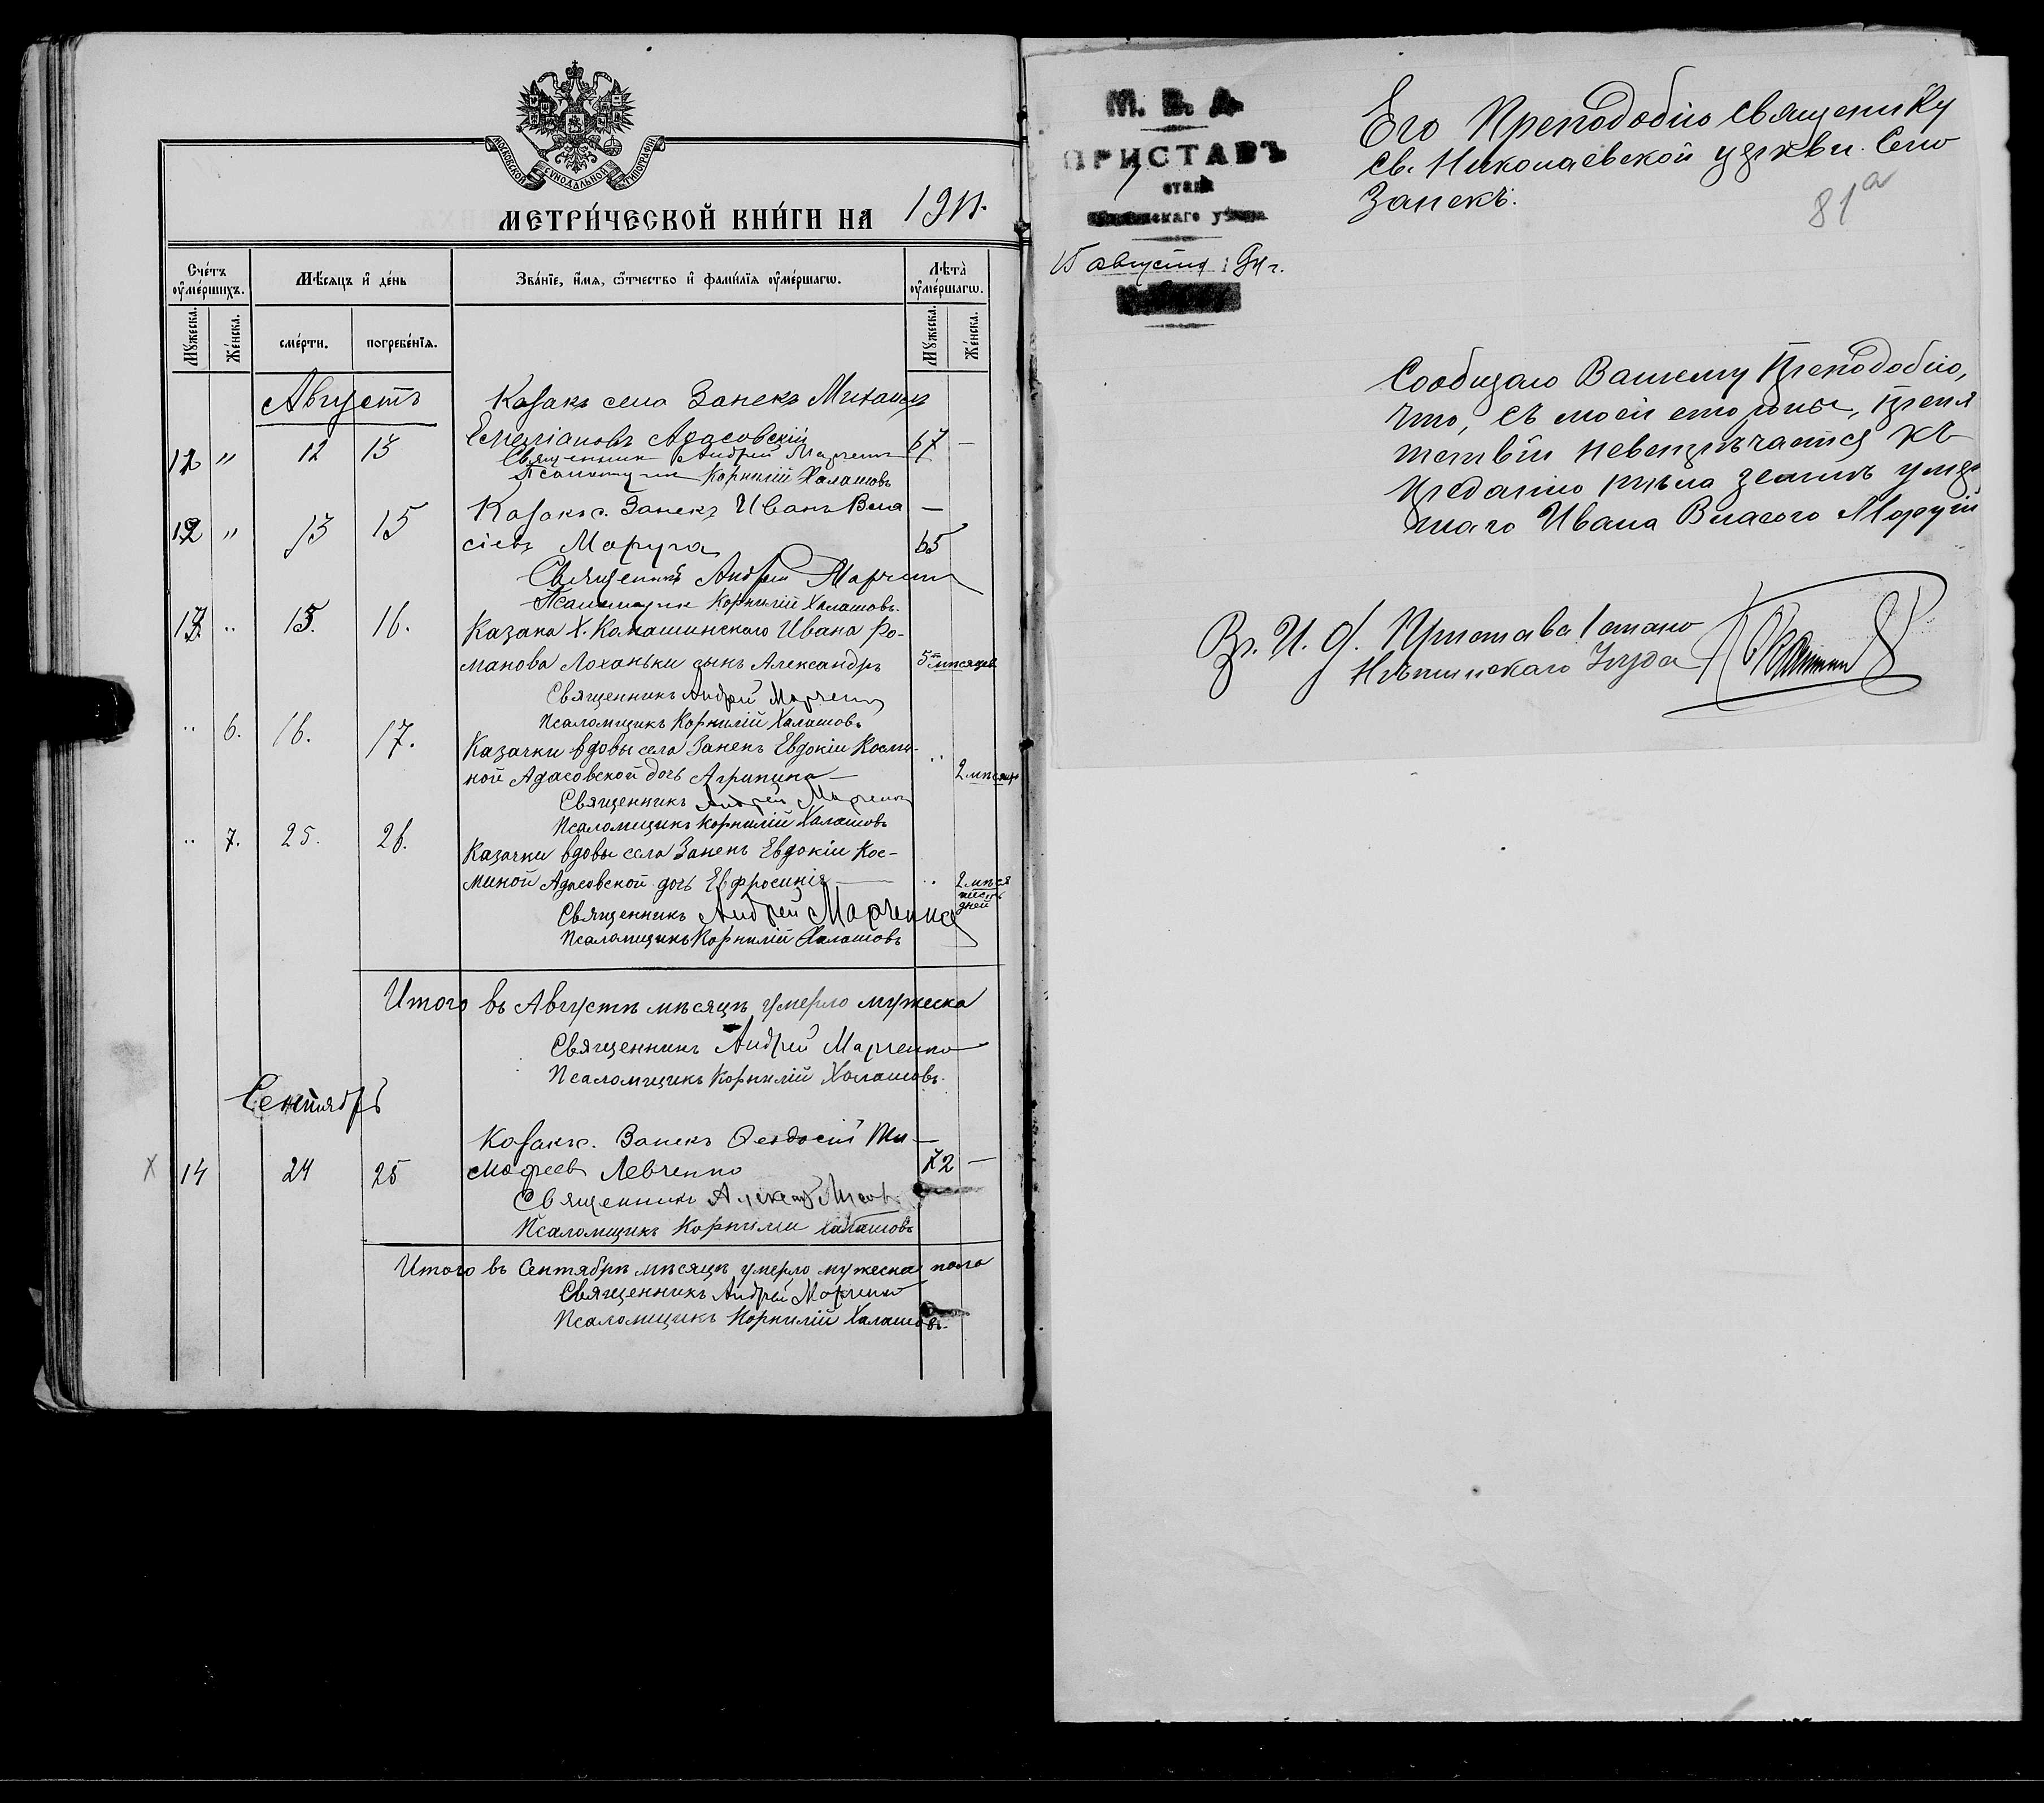 МОСКОВСКОЙ СУНОДАЛЬНОЙ ТИПОГРАФІИ
МЕТРИ́ЧЕСКОЙ КНИ́ГИ НА 1911.
Сче́тъ оумéршихъ.
Мѣ́сяцъ и де́нь
Зва́ніе, и́мя, ѻ҆́тчество и фами́лія оуме́ршагѡ.
Лѣта̀ оуме́ршагѡ.
Мꙋ́жеска.
Же́нска.
сме́рти.
погребе́нїя.
Мꙋ́жеска.
Же́нска.
Августъ
Козакъ села Занекъ Михаилъ
11 " 12 13 Емеліановъ Адасовскій 67 —
Священникъ Андрей Марченко
Псаломщикъ Корнилій Халашовъ
Козакъ с. Занекъ Иванъ Вла —
12 " 13 15 сіевъ Маруга 65
Священникъ Андрей Марченко
Псаломщикъ Корнилій Халашовъ.
13. " 15. 16. Казака Х. Калашинскаго Ивана Ро-
манова Лоханьки сынъ Александръ 5 мѣсяцев
Священникъ Андрей Марченко
Псаломщикъ Корнилій Халашовъ
" 6. 16. 17. Казачки вдовы села Занекъ Евдокіи Косми-
ной Адасовской дочь Агрипина — " 2 мѣсяца
Священникъ Андрей Марченко
Псаломщикъ Корнилій Халашовъ
" 7. 25. 26. Казачки вдовы села Занекъ Евдокіи Кос-
миной Адасовской дочь Евфросинія — " 2 мѣся
дней
Священникъ Андрей Марченко
Псаломщикъ Корнилій Халашовъ
Итого въ Августѣ мѣсяцѣ умерло мужеска
Священникъ Андрей Марченко
Псаломщикъ Корнилій Халашовъ.
Сентябрь
Козакъ с. Занекъ Ѳеодосій Ти —
Х 14 24 25 мофеев Левченко 72 —
Священникъ
Псаломщикъ Корнилій Халашовъ
Итого въ Сентябрѣ мѣсяцѣ умерло мужеска пола
Священникъ Андрей Марченко
Псаломщикъ Корнилій Халашовъ.
М. В. Д.
ПРИСТАВЪ
1 стана
уѣзда
15 августа 1911 г.
Его Преподобію Священику
Св. Николаевской церкви. Село
Занекъ.
81а
Сообщаю Вашему Преподобію,
что, съ моей стороны, препя
тствій невстрѣчается къ
преданію тѣла землѣ умер
шаго Ивана Власого Маруги
Вр. И. д. Пристава 1 стана
Нѣжинскаго Уѣзда